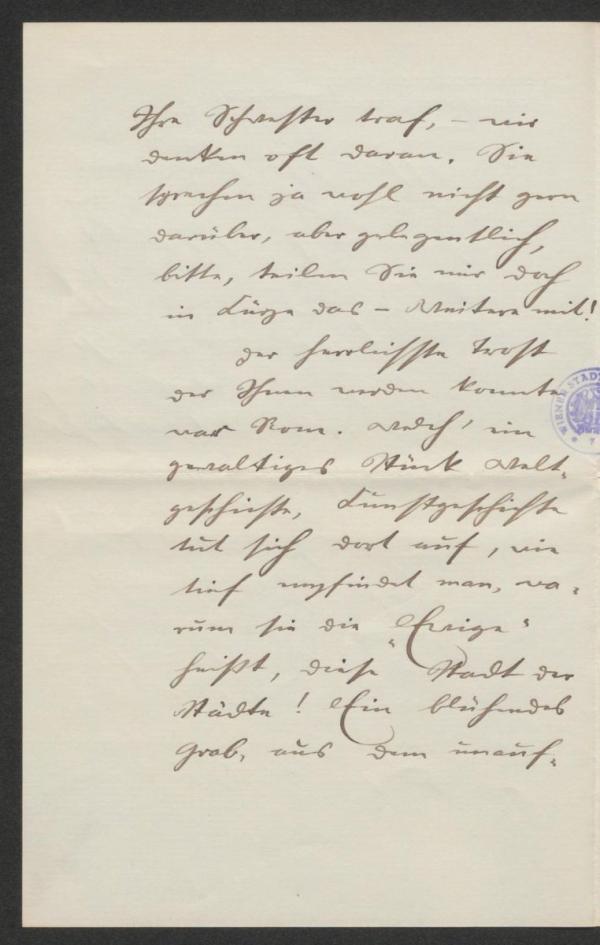 Ihre Schwester traf, – wir
denken oft daran. Sie
sprechen ja wohl nicht gern
darüber, aber gelegentlich,
bitte, teilen Sie mir doch
in Kürze das – Weitere mit!
Der herrlichste Trost
der Ihnen werden konnte
war Rom. Welch' ein
gewaltiges Stück Welt-
geschichte, Kunstgeschichte
tut sich dort auf, wie
tief empfindet man, wa-
rum sie die „Ewige“
heißt, diese Stadt der
Städte! Ein blühendes
Grab, aus dem unauf-
WIENER STAD